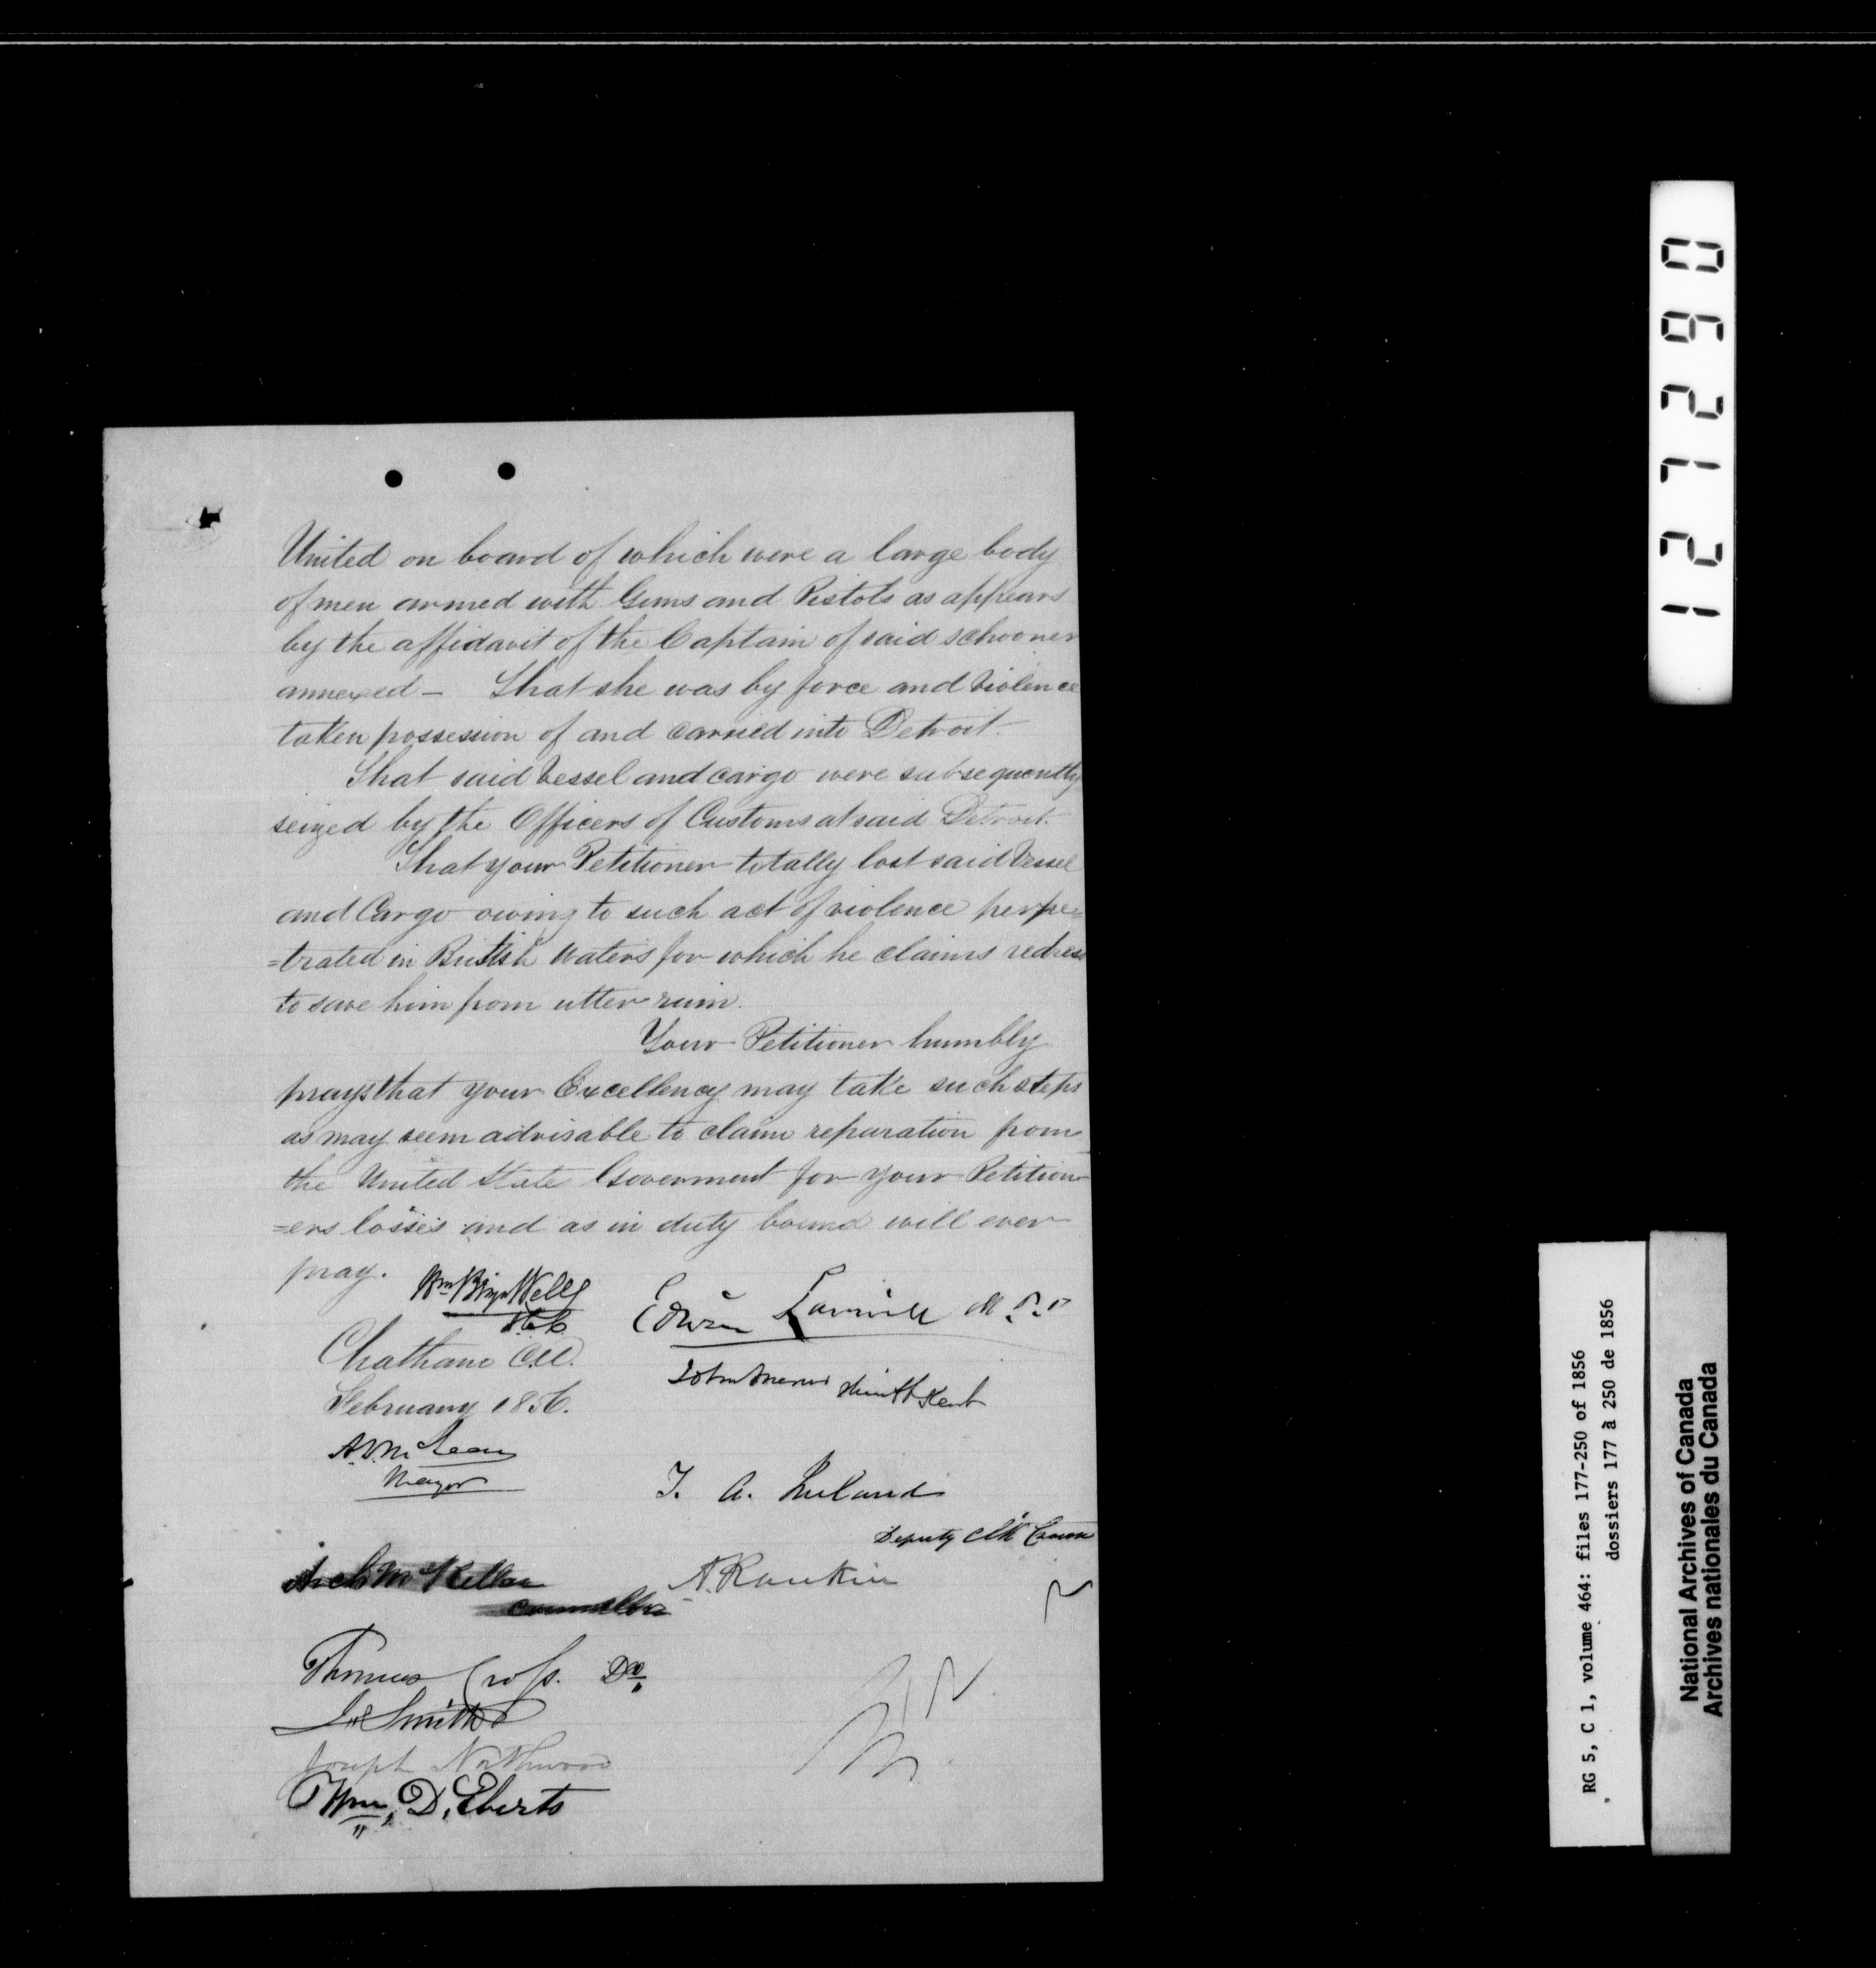 United on board of which were a large body
of men armed with Guns and Pistols as appears
by the affidavit of the Captain of said schooner
annexed – That she was by force and violence
taken possession of and carried into Detroit.
That said vessel and cargo were subsequently
seized by the Officers of Customs at said Detroit.
That your Petitioner totally lost said vessel
and Cargo owing to such act of violence perpe=
=trated in British Waters for which he claims redress
to save him from utter ruin.
Your Petitioner humbly
prays that your Excellency may take such steps
as may seem advisable to claim reparation from
the United State Goverment for your Petition
=ers losses and as in duty bound will ever
pray.
Wm Wells
Edwin Larwill M.P.P
Chatham C.W.
John Sheriff Kent
February 1856.
A. D. McLean
Mayor
T. A. Ireland
Deputy Clk Crown
Arch McKellar
A. Rankin
Councillor
Thomas Cross. Do
Smith
Joseph Northwood
Wm, D, Eberts
127290
RG 5, C 1, volume 464: files 177-250 of 1856
dossiers 177 à 250 de 1856
National Archives of Canada
Archives nationales du Canada